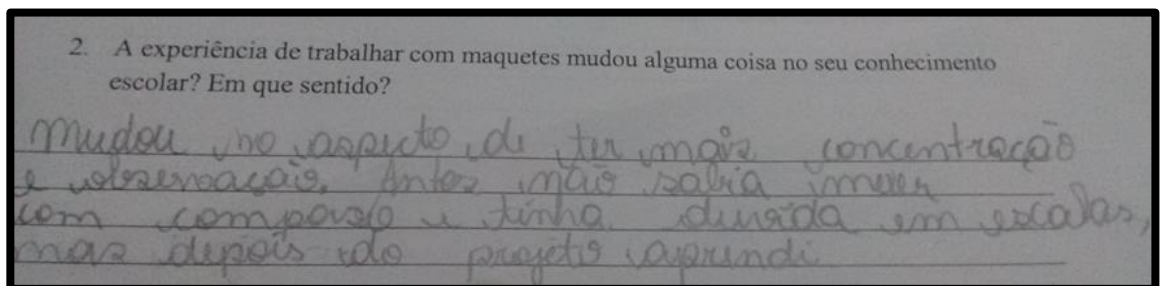 2. A experiência de trabalhar com maquetes mudou alguma coisa no seu conhecimento
escolar? Em que sentido?
mudou no aspecto de ter mais concentração
e observação. Antes não sabia mexer
com compasso e tinha duvida em escalas,
mas depois do projeto aprendi